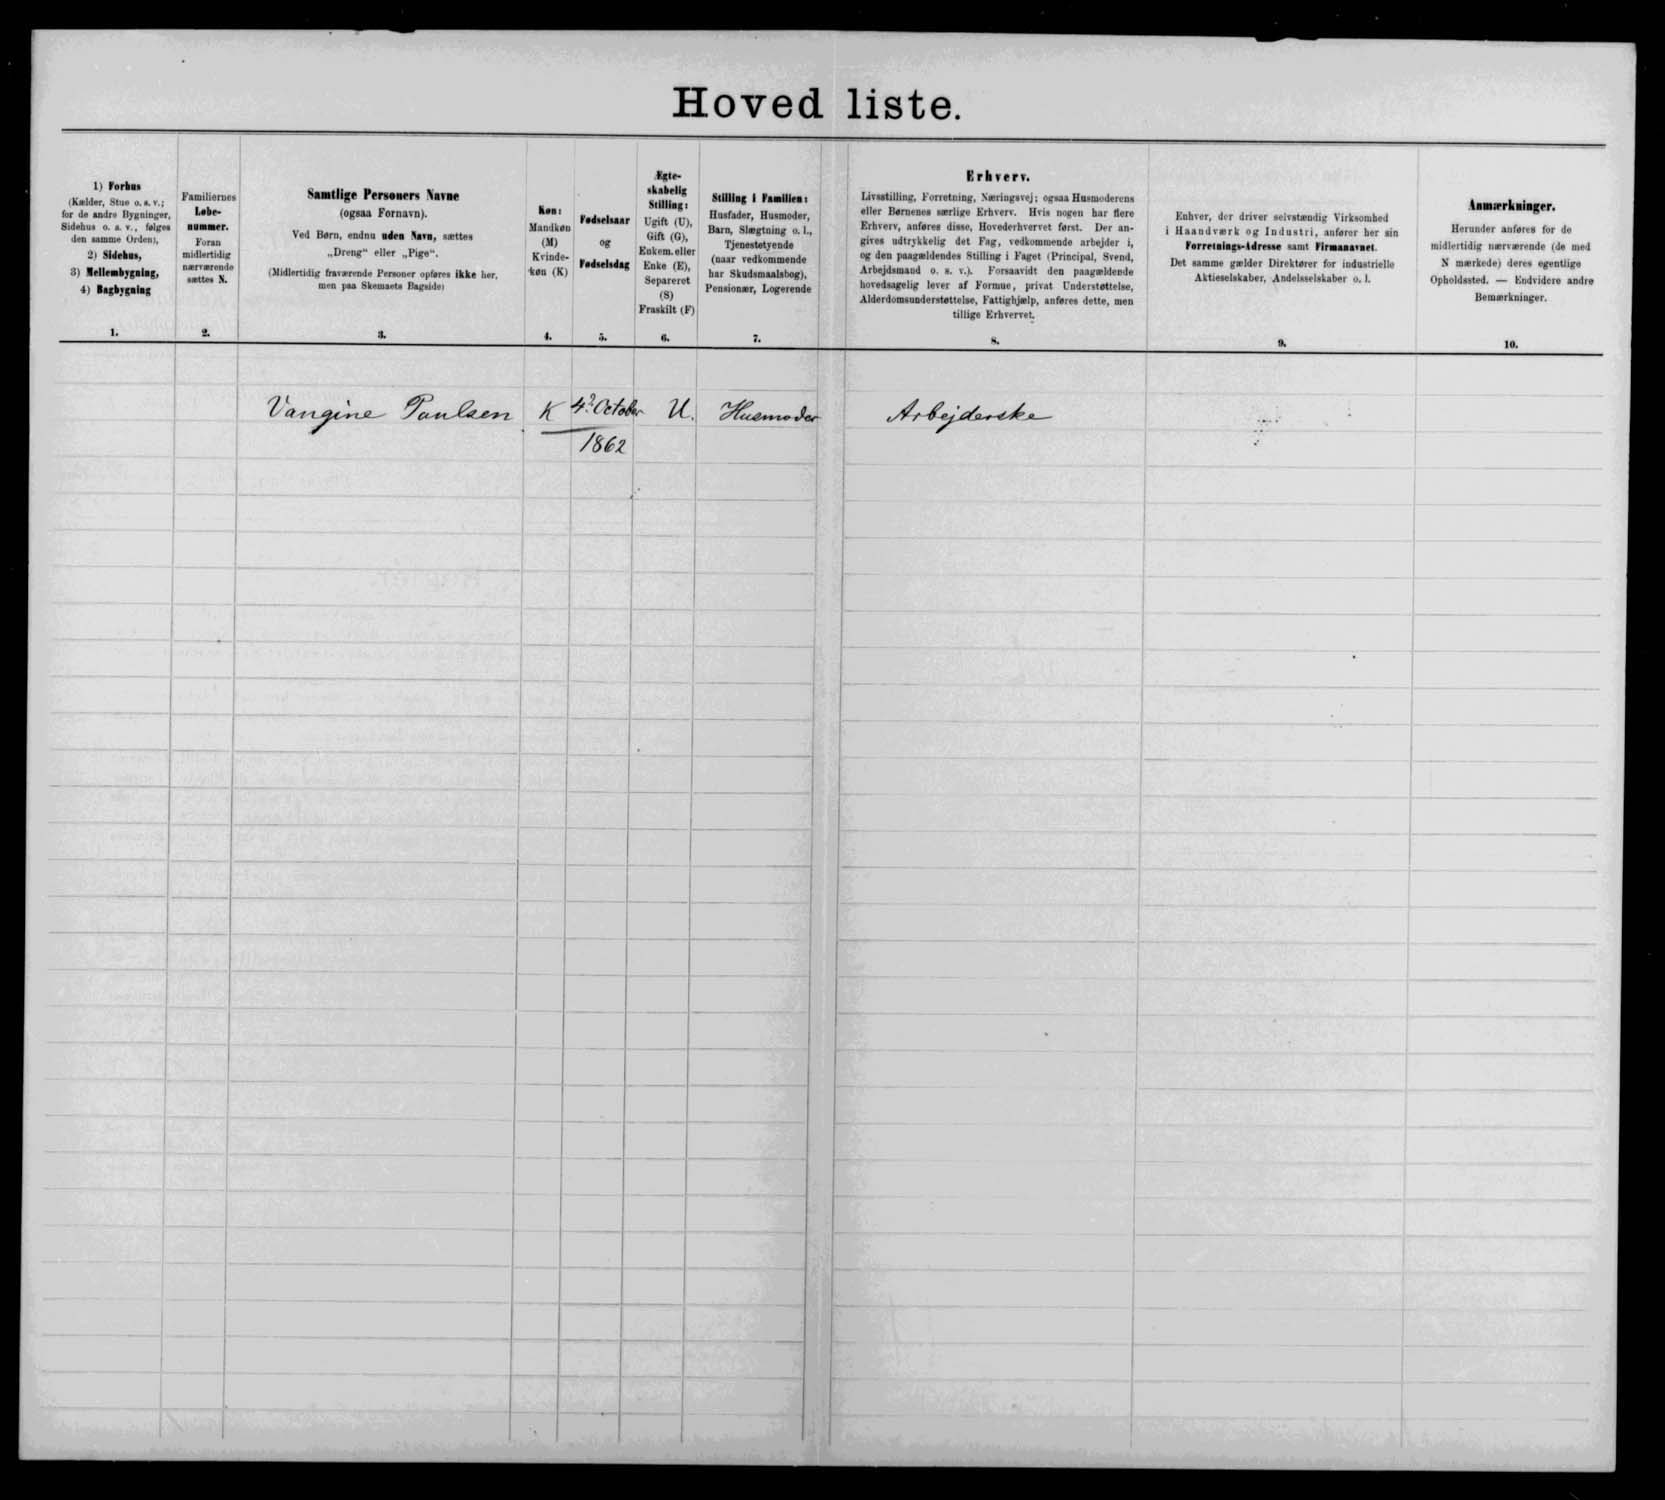 Hoved liste.
1) Forhus
(Kælder, Stue o. s. v.;
for de andre Bygninger,
Sidehus o. s. v., følges
den samme Orden),
2) Sidehus,
3) Mellembygning,
4) Bagbygning
1.
Familiernes
Løbe-
nummer.
Foran
midlertidig
nærværende
sættes N.
2.
Samtlige Personers Navne
(ogsaa Fornavn).
Ved Børn, endnu uden Navn, sættes
„Dreng“ eller „Pige“.
(Midlertidig fraværende Personer opføres ikke her,
men paa Skemaets Bagside)
3.
Køn:
Mandkøn
(M)
Kvinde-
køn (K)
4.
Fødselsaar
og
Fødselsdag
5.
Ægte-
skabelig
Stilling:
Ugift (U),
Gift (G),
Enkem. eller
Enke (E),
Separeret
(S)
Fraskilt (F)
6.
Stilling i Familien:
Husfader, Husmoder,
Barn, Slægtning o. l.,
Tjenestetyende
(naar vedkommende
har Skudsmaalsbog),
Pensionær, Logerende
7.
Erhverv.
Livsstilling, Forretning, Næringsvej; ogsaa Husmoderens
eller Børnenes særlige Erhverv. Hvis nogen har flere
Erhverv, anføres disse, Hovederhvervet først. Der an-
gives udtrykkelig det Fag, vedkommende arbejder i,
og den paagældendes Stilling i Faget (Principal, Svend,
Arbejdsmand o. s. v.). Forsaavidt den paagældende
hovedsagelig lever af Formue, privat Understøttelse,
Alderdomsunderstøttelse, Fattighjælp, anføres dette, men
tillige Erhvervet.
8.
Enhver, der driver selvstændig Virksomhed
i Haandværk og Industri, anfører her sin
Forretnings-Adresse samt Firmanavnet.
Det samme gælder Direktører for industrielle
Aktieselskaber, Andelsselskaber o. l.
9.
Anmærkninger.
Herunder anføres for de
midlertidig nærværende (de med
N mærkede) deres egentlige
Opholdssted. — Endvidere andre
Bemærkninger.
10.
Vangine Paulsen K 4 October U. Husmoder Arbejderske
1862